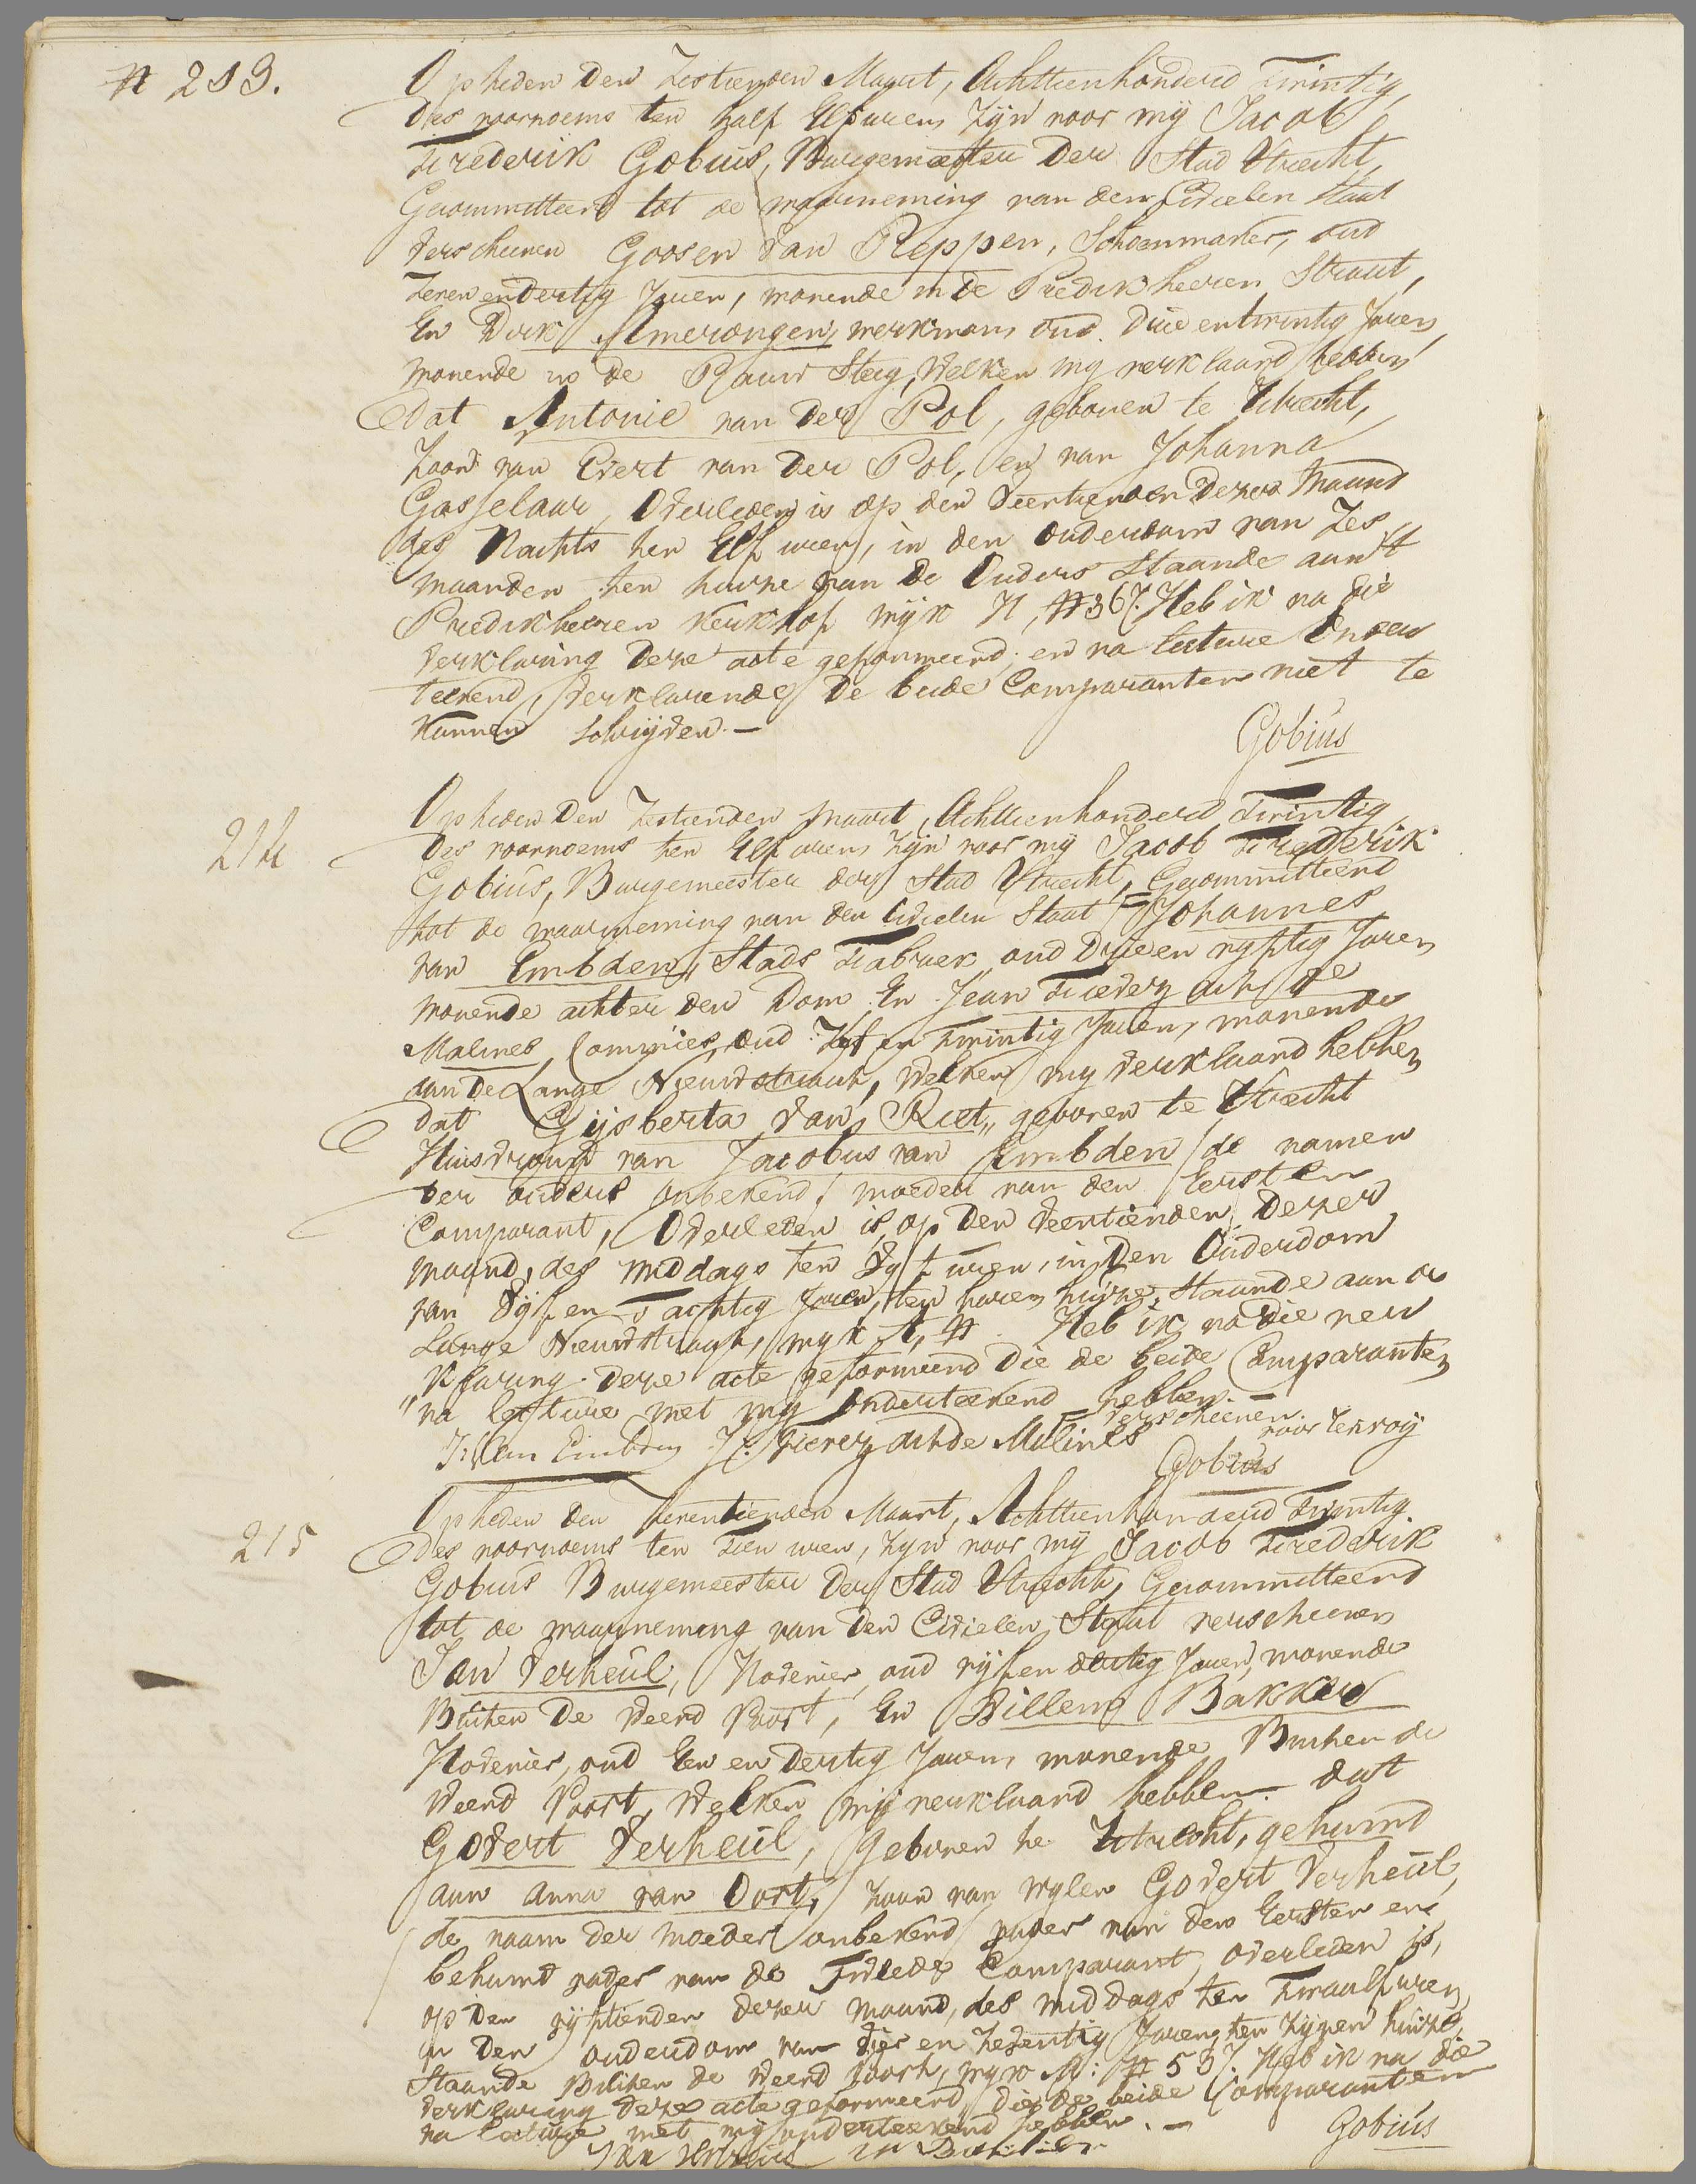 N 213.
Op heden den Zestienden Maart, Achttienhonderd Twintig,
des voornoems ten half Elf uren, Zijn voor mij Jacob
Frederik Gobius, Burgemeester der Stad Utrecht,
Gecommitteerd tot de waarneming van den Civielen Staat
Verscheenen Goosen van Reppen, Schoenmaker, oud
Zeven en dertig Jaren, wonende in de Predikheeren Straat,
En Dirk Amerongen, werkman, oud drie en twintig Jaren,
wonende in de Raam Steeg, Welken mij verklaard hebben
Dat Antonie van der Pol, geboren te Utrecht,
Zoon van Evert van der Pol, en van Johanna
Gasselaar, Overleden is op den Veertienden dezer Maand
des Nachts ten Elf uren, in den Ouderdom van Zes
maanden ten huize van de Ouders Staande aan 't
Predikheeren Kerkhof wijk H, N 367. Heb ik na die
Verklaring deze acte geformeerd, en na lecture Onder
teekend, Verklarende de beide Comparanten niet te
Kunnen Schrijven. —
Gobius
214
Op heden den Zestienden Maart, Achttienhonderd Twintig
des voornoems ten Elf uren, Zijn voor mij Jacob Frederik
Gobius, Burgemeester der Stad Utrecht, Gecommitteerd
tot de waarneming van den Civielen Staat Johannes
van Embden, Stads Fabriek, oud Drie en vyftig Jaren
wonende achter den Dom En Jean
Malines Commies, oud Zes en Twintig Jaren, wonende
aan de Lange Nieuwstraat, Welken mij Verklaard hebben
dat Gijsberta van Riet, geboren te Utrecht
Huisvrouw van Jacobus van Embden / de namen
der ouders onbekend / moeder van den Eersten
Comparant, Overleden is, op den Veertienden dezer
maand, des middags ten Vyf uren, in den Ouderdom
van Vijf en tachtig Jaren, ten haren huize, Staande aan de
Lange Nieuwstraat, wijk A, N . Heb ik na die ver
"klaring deze acte geformeerd die de beide Comparanten
"na lecture met mij Onderteekend hebben. —
verscheenen.
J: van Embden de Malines
Gobius
215
Op heden den Zeventienden Maart, Achttienhonderd Twintig
des voornoems ten Tien uren, Zijn voor mij Jacob Frederik
Gobius Burgemeester der Stad Utrecht, Gecommitteerd
tot de waarneming van den Civielen Staat verscheenen
Jan Verheul, Hovenier, oud vijf en dertig Jaren, wonende
Buiten de Weerd Poort, En Willem Bakker
Hovenier, oud Een en Dertig Jaren, wonende Buiten de
Weerd Poort, Welken mij verklaard hebben. dat
Godert Verheul, Geboren te Utrecht, gehuwd
aan Anna van Oort, Zoon van wylen Godert Verheul,
de naam der moeder onbekend, vader van den Eersten en
behuwd vader van de Tweede Comparant, Overleden is,
op den vyftienden dezer maand, des middags ten Twaalf uren,
in den ouderdom van Vier en Zeventig Jaren, ten Zijnen huize,
Staande Buiten de Weerd poort, wijk M: N 557. Heb ik na die
Verklaring deze acte geformeerd, die de beide Comparanten
na lecture met mij onderteekend hebben. —
Gobius
Jan Verheul